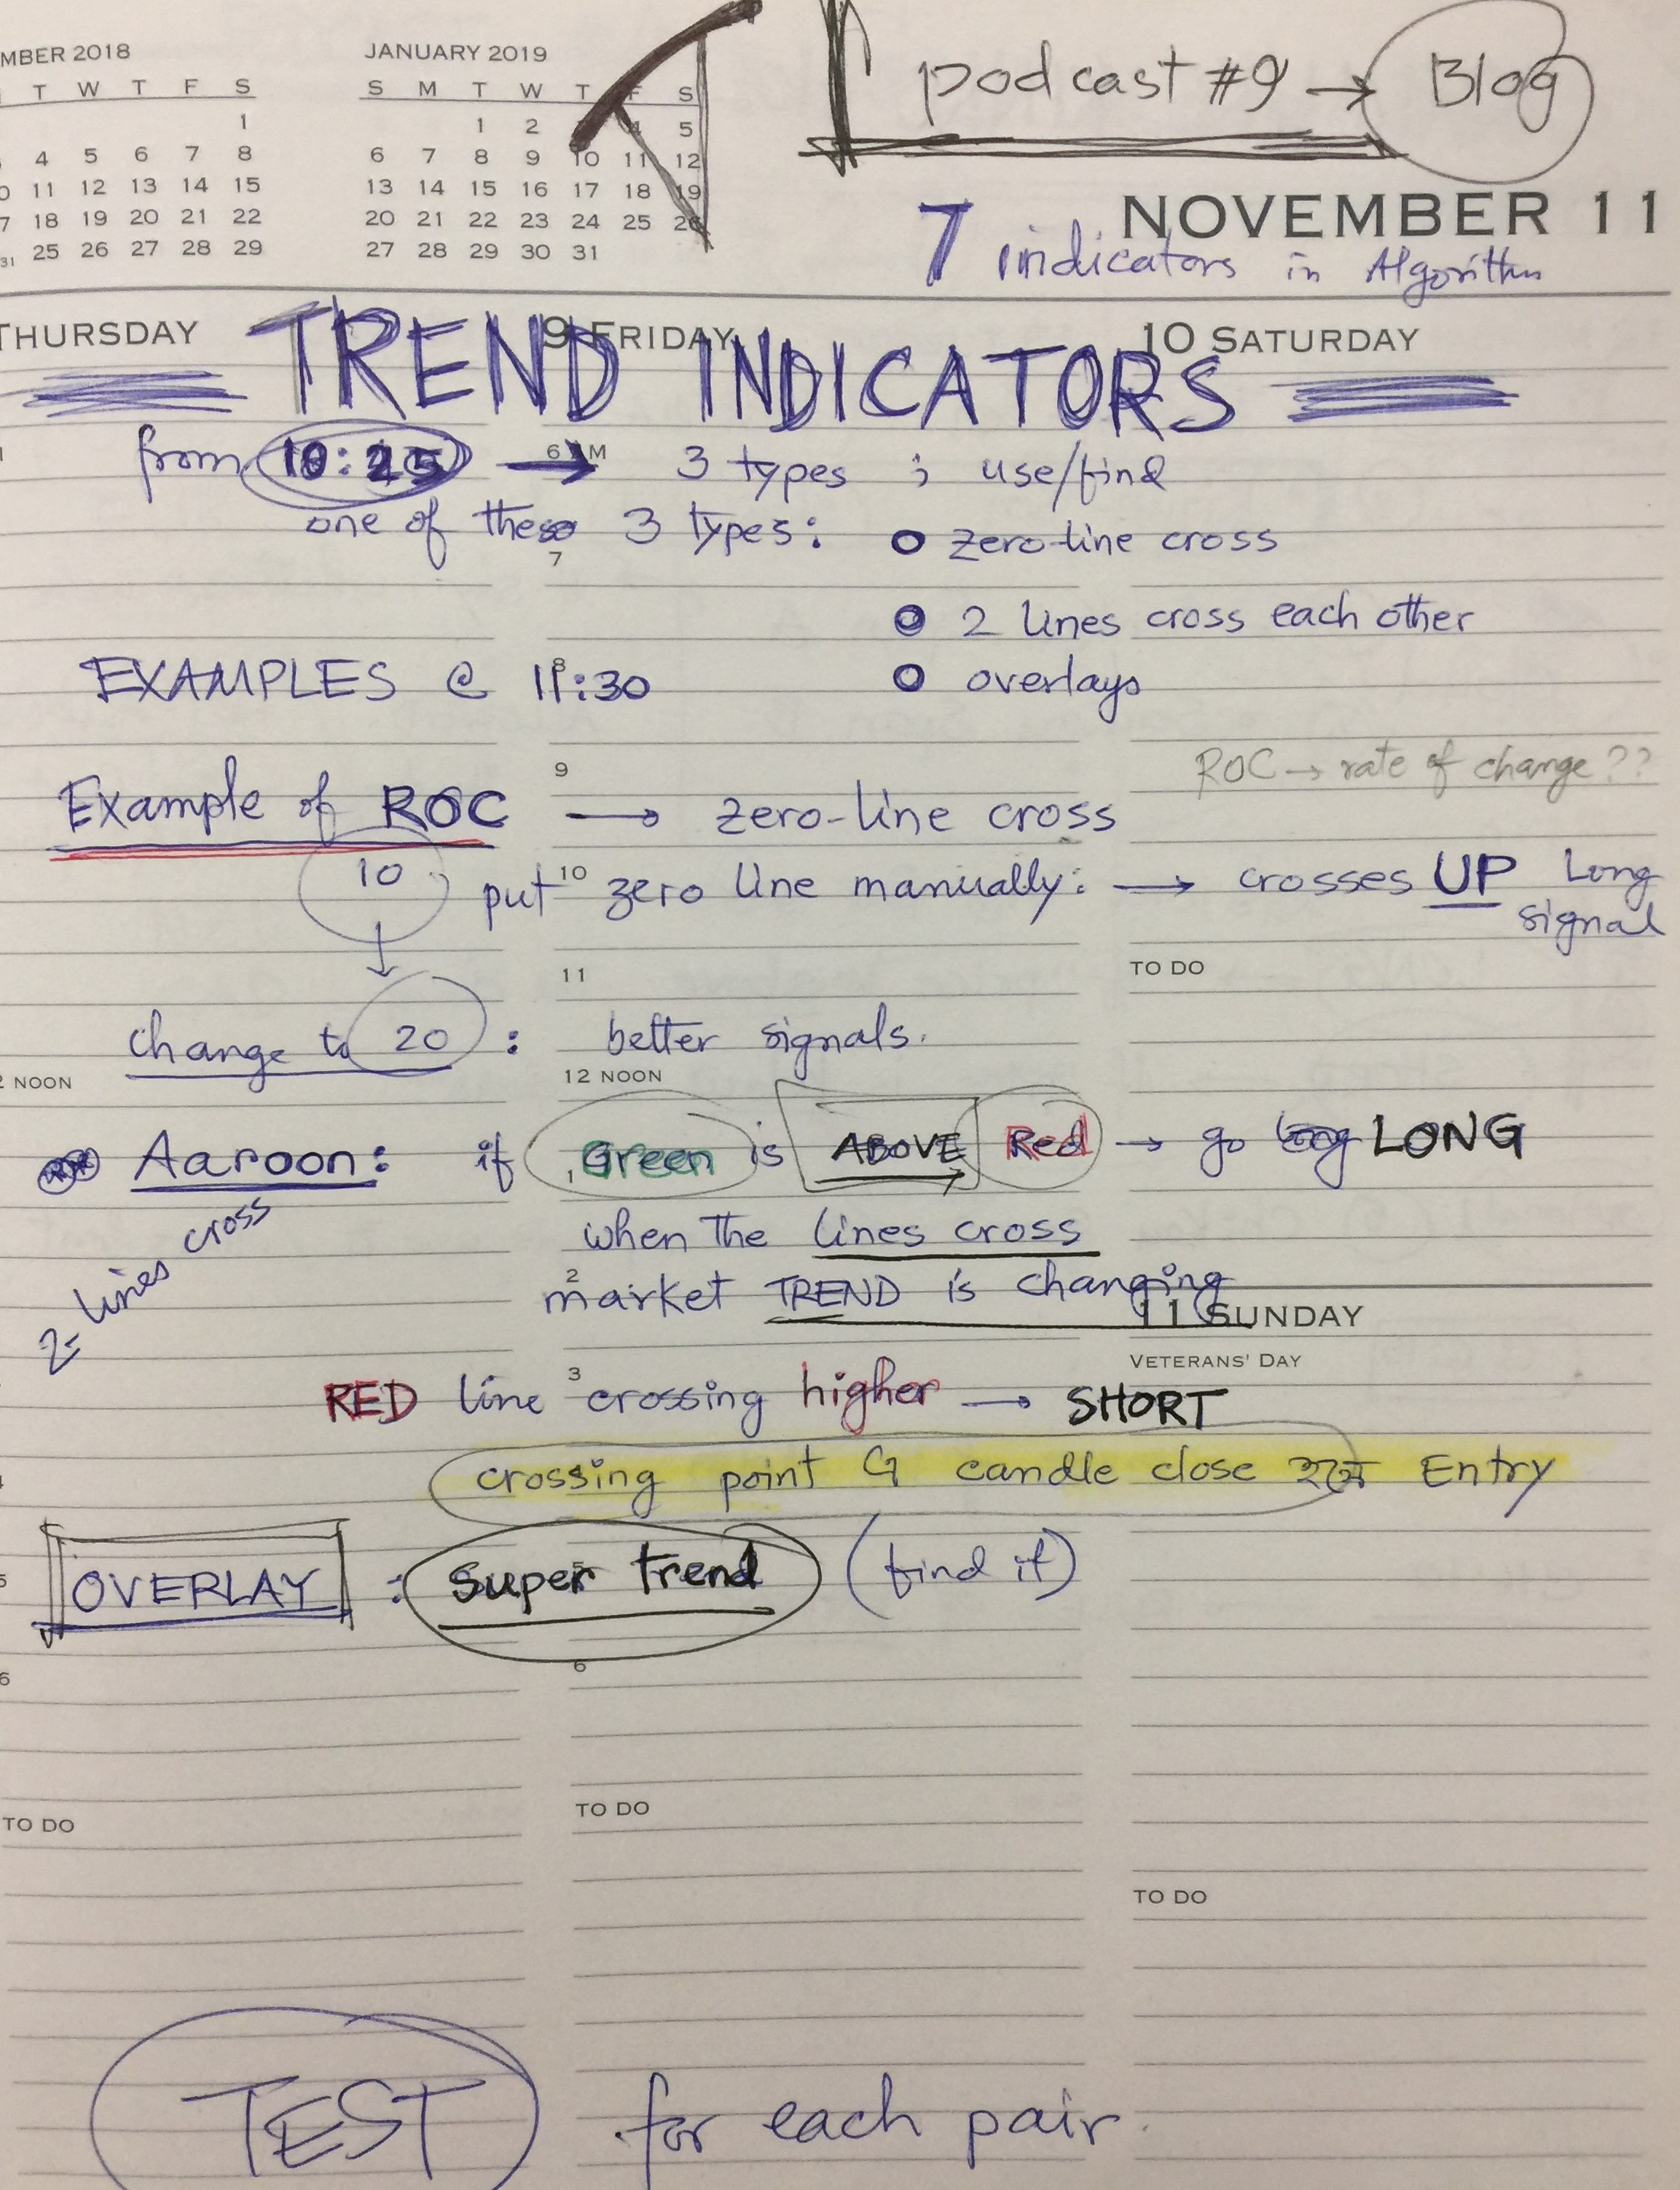 MBER 2018
T W T F S
1
4 5 6 7 8
11 12 13 14 15
18 19 20 21 22
31 25 26 27 28 29
JANUARY 2019
S M T W T F S
1 2 3 4 5
6 7 8 9 10 11 12
13 14 15 16 17 18 19
20 21 22 23 24 25 26
27 28 29 30 31
podcast #9 → Blog
NOVEMBER 11
7 indicators in Algorithm
THURSDAY 9 FRIDAY 10 SATURDAY
TREND INDICATORS
from 10:25 → 3 types ; use/find
one of these 3 types: o zero-line cross
7
o 2 lines cross each other
EXAMPLES @ 11:30 o overlays
8
ROC → rate of change ??
9
Example of ROC → zero-line cross
10 put zero line manually: → crosses UP Long signal
10
↓
11 TO DO
change to 20 : better signals.
NOON 12 NOON
Aaroon: if Green is ABOVE Red → go LONG
1
2 lines cross
when the lines cross
2
market TREND is changing
11 SUNDAY
VETERANS' DAY
3
RED line crossing higher → SHORT
crossing point candle close Entry
OVERLAY : super trend (find it)
5
6 6
TO DO TO DO
TO DO
TEST for each pair.